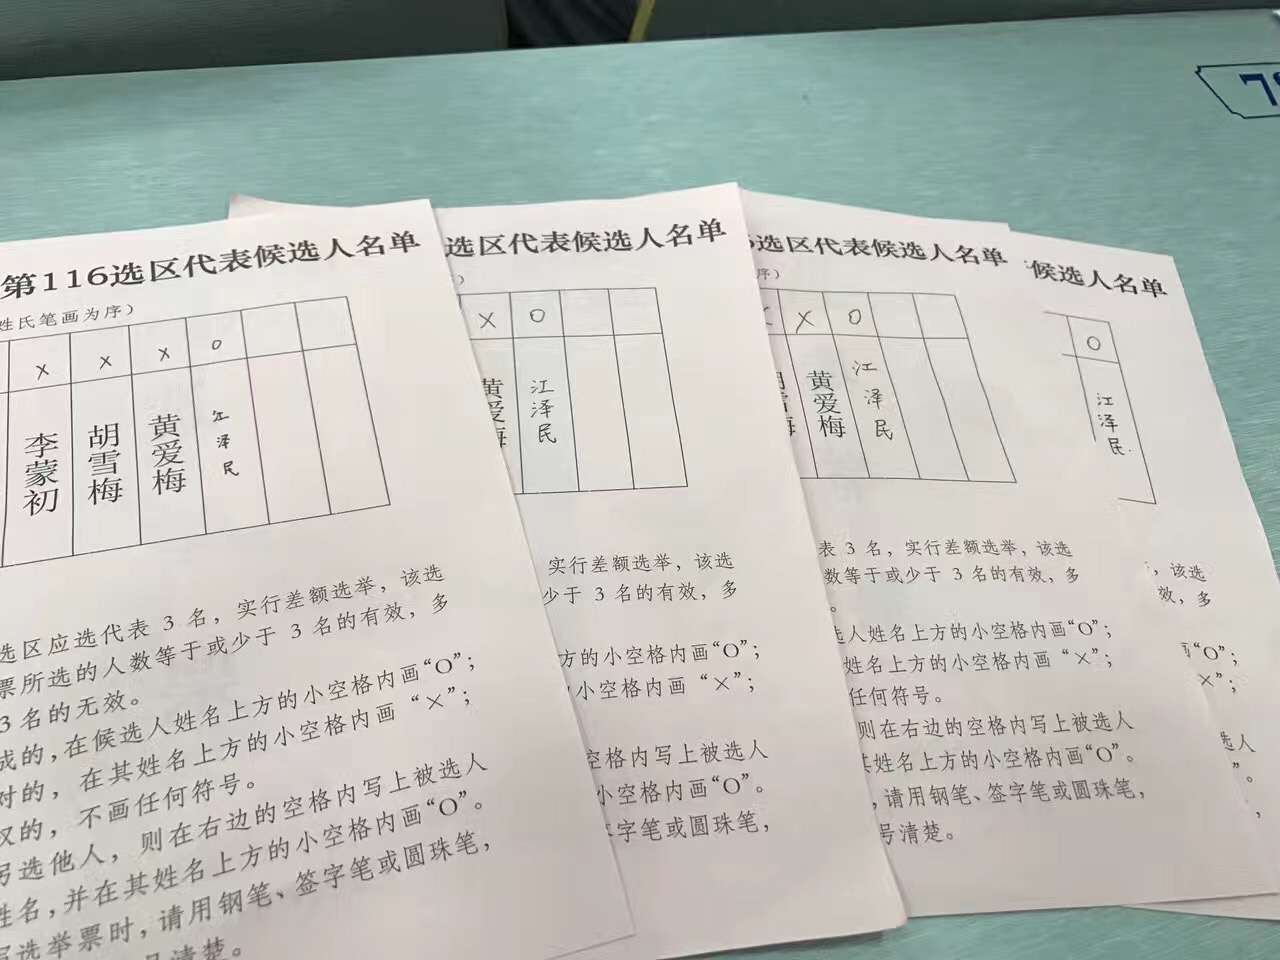 第116选区代表候选人名单
姓氏笔画为序）
X X X O
李蒙初 胡雪梅 黄爱梅 江泽民
选区应选代表 3 名，实行差额选举，该选
票所选的人数等于或少于 3 名的有效，多
3 名的无效。
成的，在候选人姓名上方的小空格内画“O”；
对的，在其姓名上方的小空格内画“×”；
权的，不画任何符号。
另选他人，则在右边的空格内写上被选人
姓名，并在其姓名上方的小空格内画“O”。
写选举票时，请用钢笔、签字笔或圆珠笔，
清楚。
选区代表候选人名单
）
X O
黄爱梅 江泽民
实行差额选举，该选
少于 3 名的有效，多
方的小空格内画“O”；
小空格内画“×”；
空格内写上被选人
小空格内画“O”。
签字笔或圆珠笔，
选区代表候选人名单
序）
X X O
胡雪梅 黄爱梅 江泽民
表 3 名，实行差额选举，该选
数等于或少于 3 名的有效，多
。
选人姓名上方的小空格内画“O”；
姓名上方的小空格内画“×”；
任何符号。
则在右边的空格内写上被选人
其姓名上方的小空格内画“O”。
，请用钢笔、签字笔或圆珠笔，
号清楚。
候选人名单
O
江泽民
，该选
效，多
“O”；
×”；
选人
”。
，